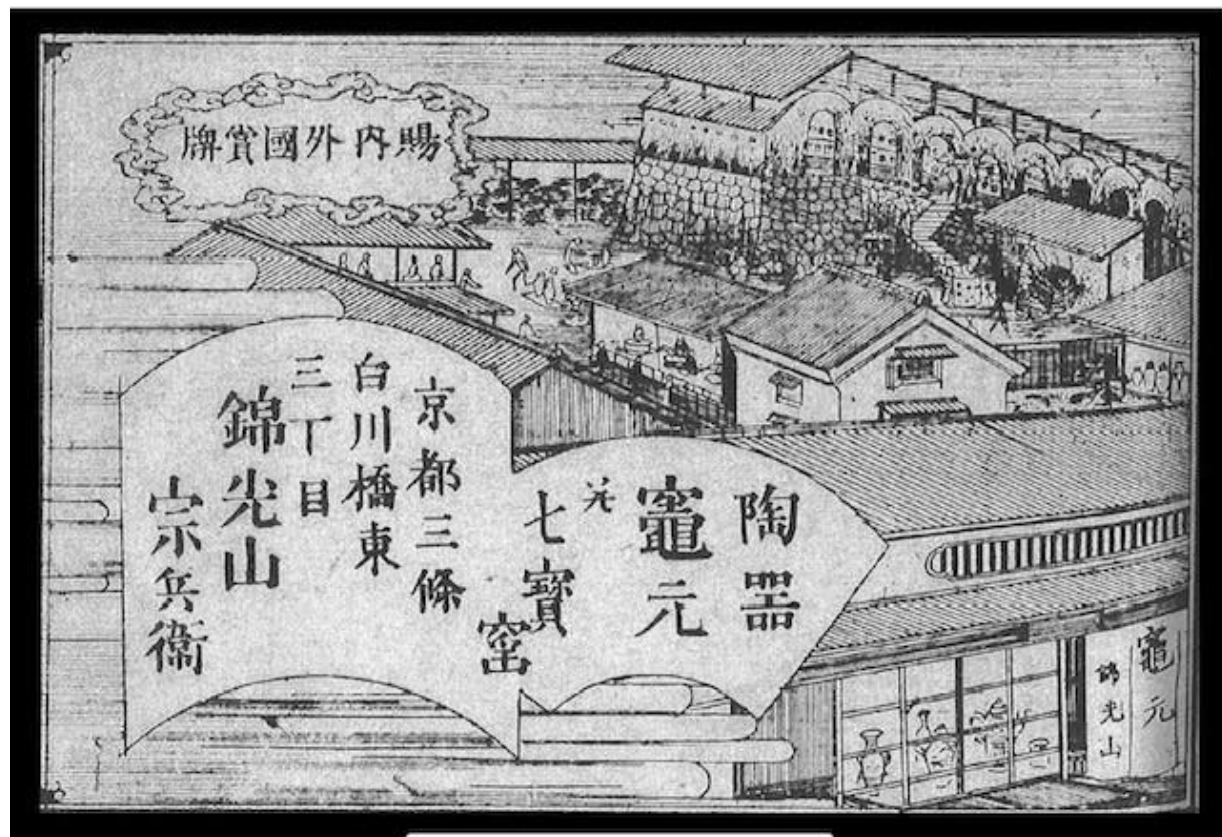 賜内外國賞牌
陶噐
竈元
并
七寶
窑
京都三條
白川橋東
三丁目
錦光山
宗兵衞
竈元
錦光山